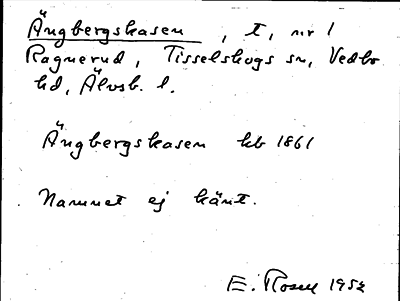 Ängbergskasen, t, nr 1
Ragnerud, Tisselskogs sn, Vedbo
hd, Älvsb. l.
Ängbergskasen kb 1861
Namnet ej känt.
E. Rosell 1952